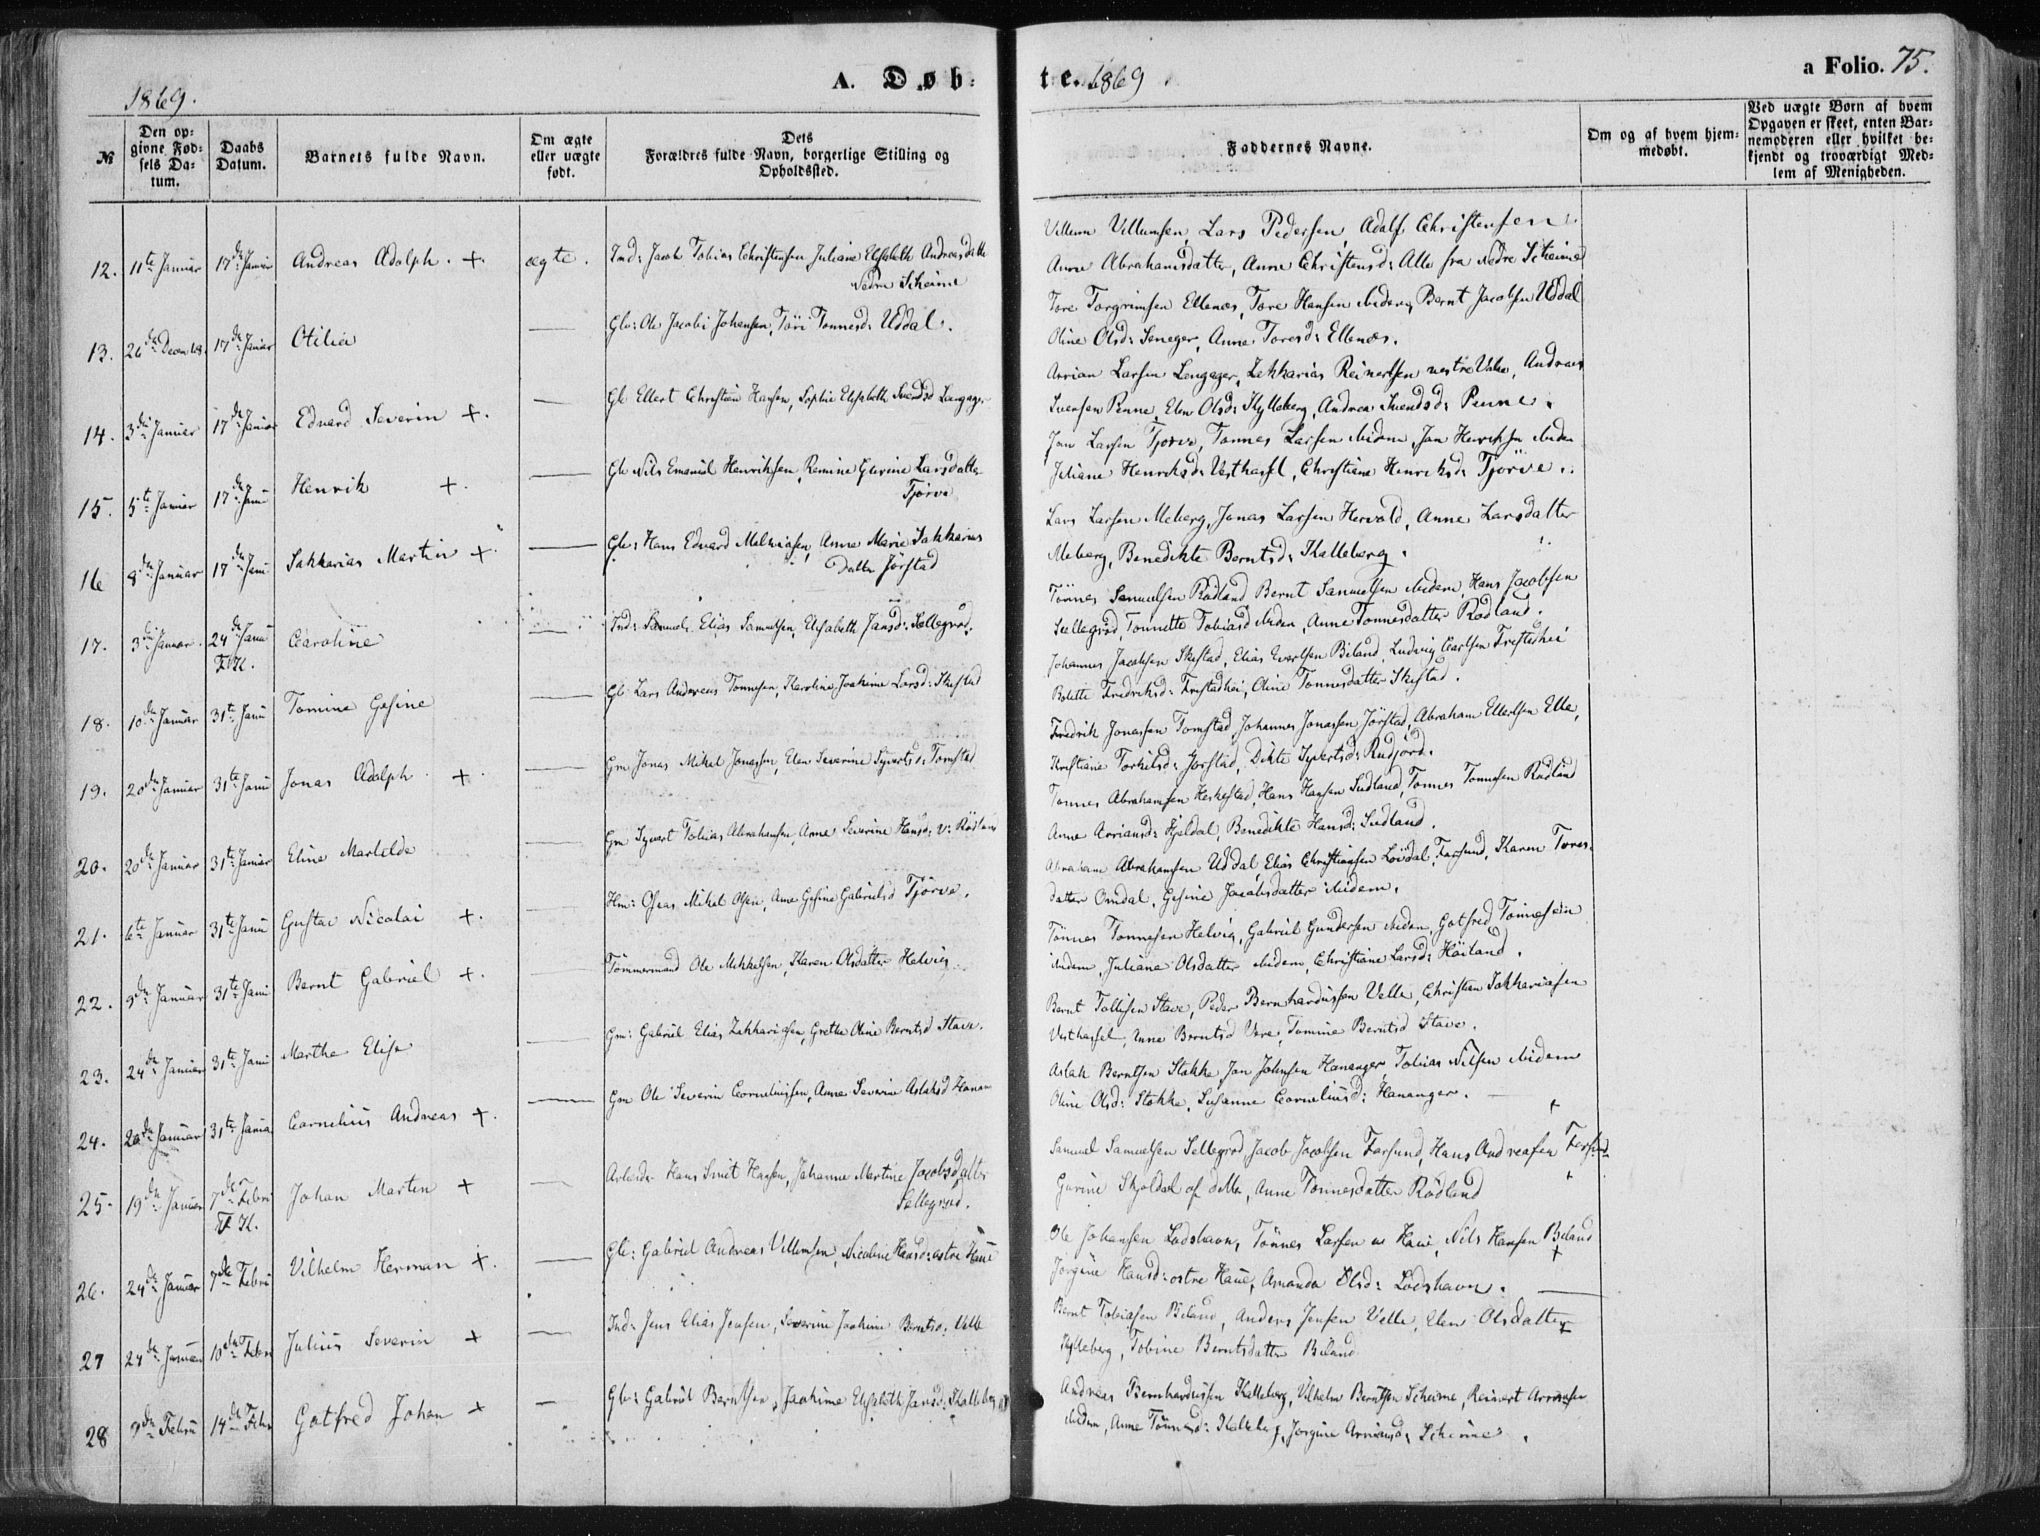 1869.
A. Døb-
te. 1869
a Folio. 75.
№
Den opgivne Fødsels Datum.
Daabs Datum.
Barnets fulde Navn.
Om ægte eller uægte født.
Dets Forældres fulde Navn, borgerlige Stilling og Opholdssted.
Faddernes Navne.
Om og af hvem hjemmedøbt.
Ved uægte Børn af hvem Opgaven er skeet, enten Barnemoderen eller hvilket bekjendt og troværdigt Medlem af Menigheden.
12. 11te Januar 17de Januar Andreas Adolph. + ægte. Ind: Jacob Tobias Christensen Juliane Elisabeth Andreasdatter
Nedre Scheime
Villum Villumsen, Lars Pedersen, Adolf Christensen
Anne Abrahamsdatter, Anne Christensd: Alle fra Nedre Scheime
13. 26de Decemb 17de Januar Otilia — Gb: Ole Jacobi Johansen, Tøri Tønnesd: Uddal.
Tore Torgrimsen Ellenes, Tore Hansen ibidem, Bernt Jacobsen Uddal
Oline Olsd: Seneger, Anne Toresd: Ellenes.
14. 3die Januar 17de Januar Edvard Severin +. — Gb Ellert Christian Hansen, Sophie Elisabeth Svendsd Lengager
Arrian Larsen Lengager, Zakharias Reinertsen vestre Vatne, Andreas
Iversen Penne, Elen Olsd: Kylleberg, Andrea Svendsd: Penne.
15. 5te Januar 17de Janu Henrik +. — Gb Nils Emanuel Henriksen, Remine Gurine Larsdatter
Tjørve
Jan Larsen Tjørve, Tønnes Larsen ibidem, Jan Henriksen ibidem
Juliane Henriksd: Vesthassel, Christiane Henriksd: Tjørve.
16 8de Januar 17de Janu Sakkarias Martin + — Gb: Hans Edvard Melkiasen, Anne Marie Sakkarias
datter Jørstad
Lars Larsen Meberg, Jonas Larsen Hervold, Anne Larsdatter
Meberg, Benedikte Berntsd: Kalleberg.
17. 3die Januar. 24de Janu F.K. Caroline — Ind: Samuel Elias Samuelsen, Elisabeth Jansd: Sellegrod.
Tönnes Samuelsen Rødland Bernt Samuelsen ibidem, Hans Jacobsen
Sellegrød Tonnette Tobiasd ibidem, Anne Tonnesdatter Rødland.
18. 10de Januar 31te Janu Tomine Gesine — Gb Lars Andreas Tonnesen, Karoline Joakime Larsd: Skestad
Johannes Jacobsen Skestad, Elias Evertsen Biland, Ludvig Carlsen Frestadhei
Bolette Fredriksd: Frestadhei, Oline Tonnesdatter Skestad.
19. 20de Januar 31te Janu Jonas Adolph. +. — Gm Jonas Mikal Jonassen, Elen Severine Syvertsd: Tomstad
Fredrik Jonassen Tomstad, Johannes Jonassen Jørstad, Abraham Ellertsen Elle,
Kristiane Torkilsd: Jorstad, Dikte Syvertsd: Rudjord.
20. 20de Januar 31te Januar Eline Martilde — Gm Syvert Tobias Abrahamsen, Anne Severine Hansd: V: Rødland
Tonnes Abrahamsen Heskestad, Hans Hansen Sudland, Tonnes Tonnesen Rødland
Anne Arriansd: Hjeldal, Benedikte Hansd: Sudland.
21. 6te Januar 31te Janu Gustav Nicolai +. — Hm: Osias Mikal Olsen, Anne Gesine Gabrielsd Tjörve.
Abraham Abrahamsen Uddal, Elias Christiansen Lovdal, Farsund, Karen Tores-
datter Omdal, Gesine Jacobsdatter ibidem.
22. 9de Januar 31te Janu Bernt Gabriel +. — Tömmermand Ole Mikkelsen, Karen Olsdatter Helvig
Tönnes Tonnesen Helvig, Gabriel Gundersen ibidem, Gotfred Tonnesen
ibidem, Juliane Olsdatter ibidem, Christiane Larsd: Höiland.
23. 24de Januar 31te Janu Marthe Elise — Gm: Gabriel Elias Zakhariasen, Grethe Oline Berntsd Stave.
Bernt Tollisen Stave, Peder Bernhardussen Velle, Christian Sakhariasen
Vesthassel, Anne Berntsd Vere, Tomine Berntsd Stave.
24. 20de Januar 31te Janua Cornelius Andreas +. — Gm Ole Severin Corneliussen, Anne Severine Aslaksd Hanan
Aslak Berntsen Stokke Jan Johnsen Hananger Tobias Nilsen ibidem
Oline Olsd: Stokke, Susanne Corneliusd: Hananger. — +
25. 19de Januar 7de Febru F.K. Johan Martin + — Arbeider Hans Smit Hansen, Johanne Martine Jacobsdatter
Sellegrod.
Samuel Samuelsen Sellegrod Jacob Jacobsen Farsund, Hans Andreasen Farsund
Gurine Skjoldal af dette, Anne Tonnesdatter Rødland +
26. 24de Januar 7de Febru Vilhelm Herman +. — Gb: Gabriel Andreas Villumsen, Nicoline Hansd: østre Haue
Ole Johansen Lodshavn, Tönnes Larsen Haue, Nils Hansen Biland
Jorgine Hansd: østre Haue, Amanda Olsd: Lodshavn. +
27 24de Januar 10de Febru Julius Severin + — Ind: Jens Elias Jensen, Severine Joakime Berntsd: Velle
Bernt Tobiasen Biland, Anders Jensen Velle, Elen Olsdatter
Kylleberg, Tobine Berntsdatter Biland +
28 9de Febru 14de Febr Gotfred Johan + — Gb: Gabriel Berntsen, Joakime Elisabeth Jansd: Kalleberg
Andreas Bernhardussen Kalleberg, Vilhelm Berntsen Scheime, Reinert Arriansen
ibidem, Anne Tönnesd: Kalleberg, Jorgine Arriansd: Scheime.